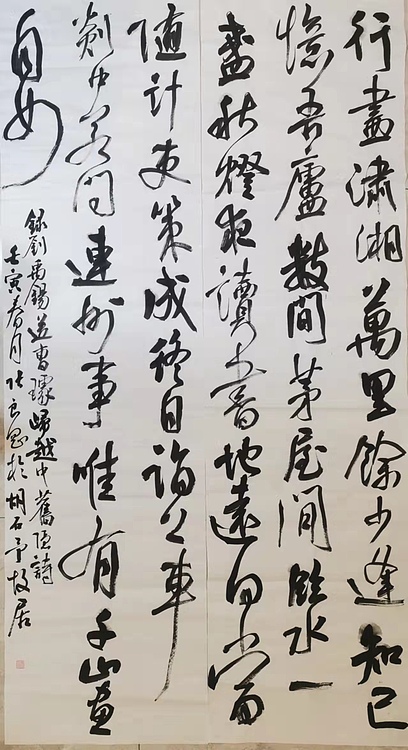 行盡瀟湘萬里餘少逢知己
憶吾廬數間茅屋間臨水一
盞秋燈夜讀書地遠何當
隨計吏策成終自詣公車
剡中若問連州事唯有千山畫
不如
錄劉禹錫送曹璩歸越中舊隱詩
壬寅春月張良於胡石予故居